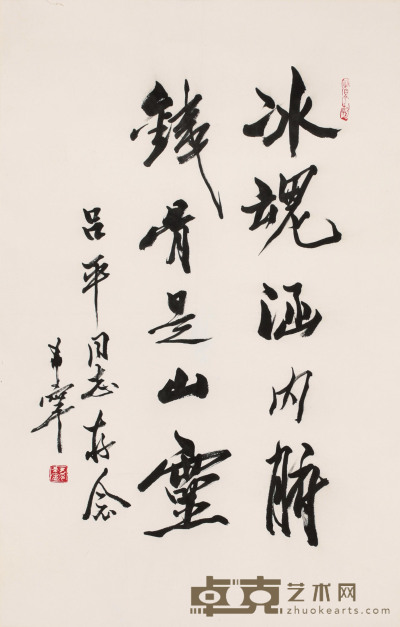 冰魂涵内腑
鐵骨是山靈
吕平同志存念
卓克艺术网
zhuokearts.com